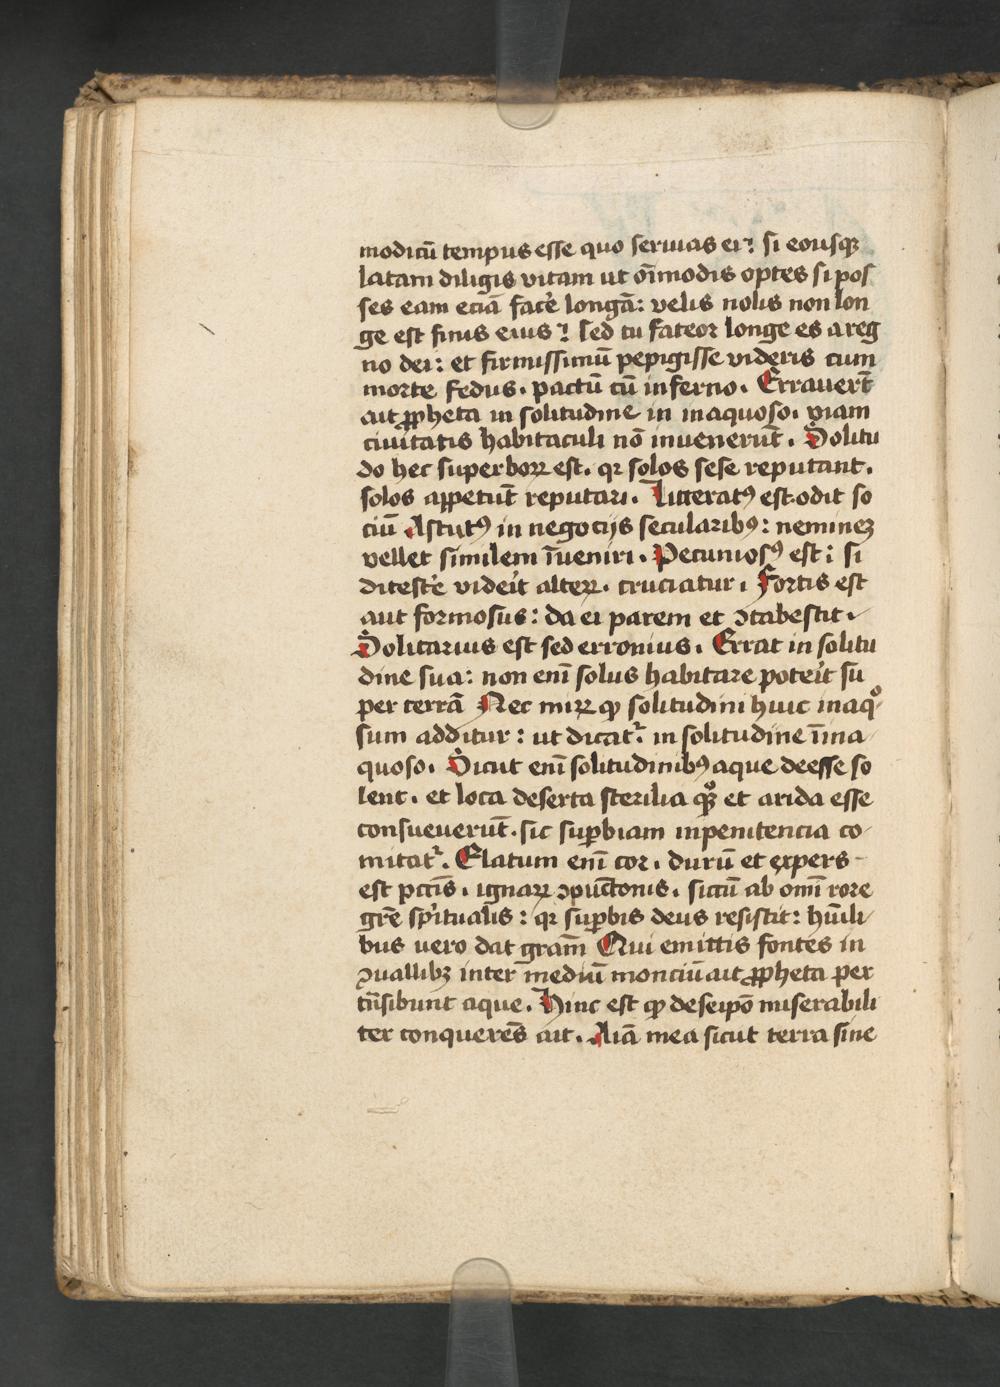 modicū tempus esse quo seruias ei? si eousqꝫ
latam diligis vitam ut oīmodis optes si pos
ses eam eciā fac̄e longā: velis nolis non lon
ge est finis eius? sed tu fateor longe es a reg
no dei: et firmissimū pepigisse videris cum
morte fedus. pactū cū inferno. Errauerūt
ait ꝓpheta in solitudine in inaquoso. viam
ciuitatis habitaculi nō inuenerūt. Solitu
do hec superboꝝ est. qꝛ solos sese reputant.
solos appetūt reputari. Litteratꝰ est. odit so
ciū Astutꝰ in negocijs secularibꝰ: neminez
vellet similem īueniri. Pecuniosꝰ est: si
ditesc̄e videīt alteꝝ. cruciatur. Fortis est
aut formosus: da ei parem et ꝯtabescit.
Solitarius est sed erronius. Errat in solitu
dine sua: non enī solus habitare poteīt su
per terrā Nec miꝝ ꝙ solitudini huic inaqͦ
sum additur: ut dicat᷑. in solitudine īina
quoso. Sicut enī solitudinibꝰ aque deesse so
lent. et loca deserta sterilia qꝫ et arida esse
consueuerūt. sic suꝑbiam inpenitencia co
mitat᷑. Elatum enī cor. durū et expers
est pietīs. ignaꝝ ꝯpūctonis. siccū ab omī rore
grē spūalis: qꝛ suꝑbis deus resistit: hūili
bus uero dat gram̄ Qui emittis fontes in
ꝯuallibꝫ inter mediū monciū ait ꝓpheta per
trāsibunt aque. Hinc est ꝙ de seipō miserabili
ter conquerēs ait. Aīa mea sicut terra sine